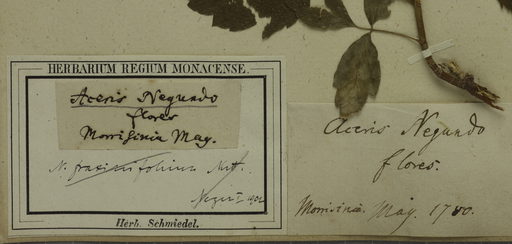 HERBARIUM REGIUM MONACENSE.
Aceris Negundo
flores
Morrisinia May.
N. fraxinifolium Nutt.
Herb. Schmiedel.
Aceris Negundo
flores.
Morrisinia. May. 1780.